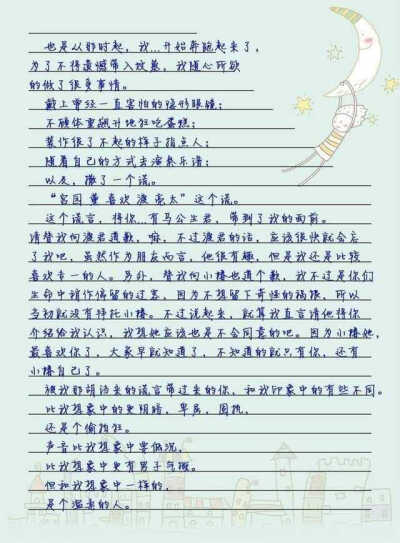 也是从那时起，我…开始奔跑起来了，
为了不将遗憾带入坟墓，我随心所欲
的做了很多事情。
戴上曾经一直害怕的隐形眼镜；
不顾体重飙升地狂吃蛋糕；
装作很了不起的样子指点人；
随着自己的方式去演奏乐谱；
以及，撒了一个谎。
“宫园薰喜欢渡亮太”这个谎。
这个谎言，将你…有马公生君，带到了我的面前。
请替我向渡君道歉，嘛，不过渡君的话，应该很快就会忘
了我吧，虽然作为朋友而言，他很有趣，但是我还是比较
喜欢专一的人。另外，替我向小椿也道个歉，我不过是你们
生命中稍作停留的过客，因为不想留下奇怪的祸根，所以
当初就没有拜托小椿。不过说起来，就算我直言请他将你
介绍给我认识，我想她应该也是不会同意的吧。因为小椿她，
最喜欢你了，大家早就知道了，不知道的就只有你，还有
小椿自己了。
被我那胡诌来的谎言带过来的你，和我印象中的有些不同。
比我想象中的更阴暗、卑屈、固执，
还是个偷拍狂。
声音比我想象中要低沉，
比我想象中更有男子气概。
但和我想象中一样的，
是个温柔的人。